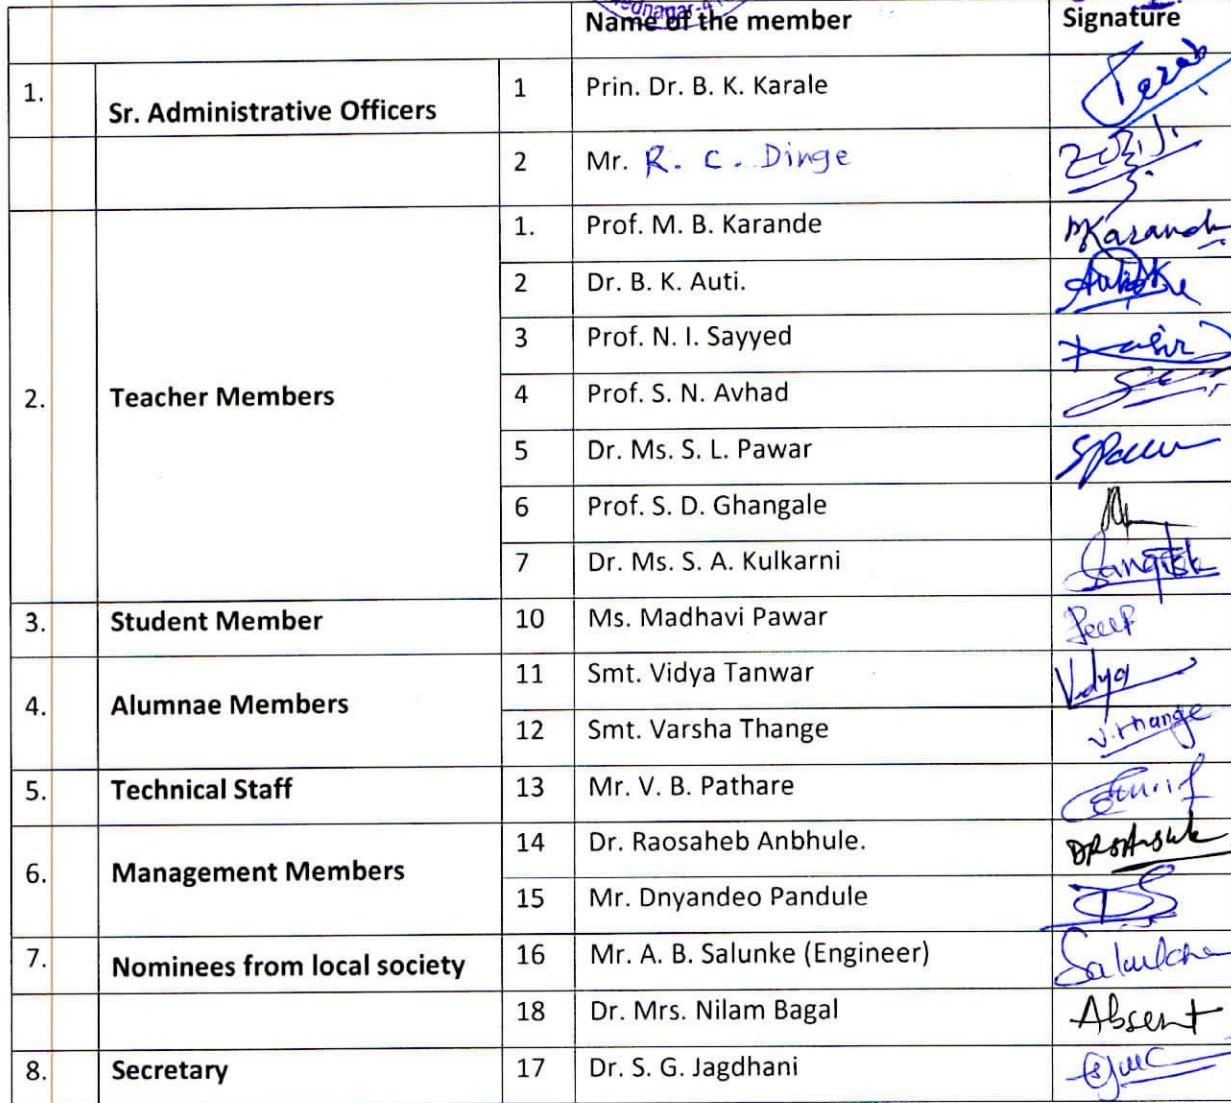 Name of the member Signature
1. Sr. Administrative Officers 1 Prin. Dr. B. K. Karale
2 Mr. R. C. Dinge
2. Teacher Members
1. Prof. M. B. Karande MKarande
2 Dr. B. K. Auti.
3 Prof. N. I. Sayyed
4 Prof. S. N. Avhad
5 Dr. Ms. S. L. Pawar SPawar
6 Prof. S. D. Ghangale
7 Dr. Ms. S. A. Kulkarni
3. Student Member 10 Ms. Madhavi Pawar
4. Alumnae Members
11 Smt. Vidya Tanwar Vidya
12 Smt. Varsha Thange V.Thange
5. Technical Staff 13 Mr. V. B. Pathare
6. Management Members
14 Dr. Raosaheb Anbhule.
15 Mr. Dnyandeo Pandule
7. Nominees from local society 16 Mr. A. B. Salunke (Engineer)
18 Dr. Mrs. Nilam Bagal Absent
8. Secretary 17 Dr. S. G. Jagdhani